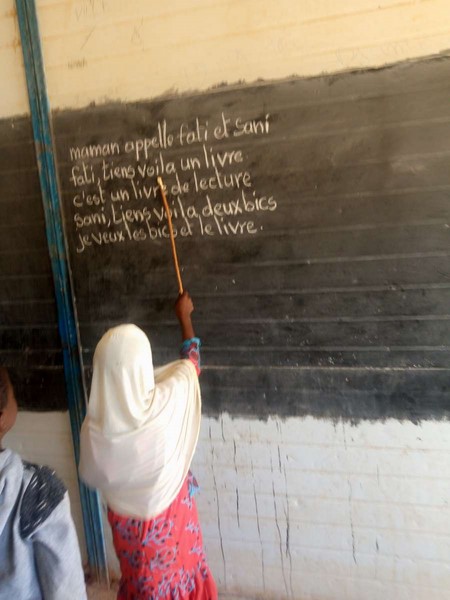 maman appelle fati et sani
fati, tiens voila un livre
c'est un livre de lecture
sani, tiens voila deux bics
je veux les bics et le livre.